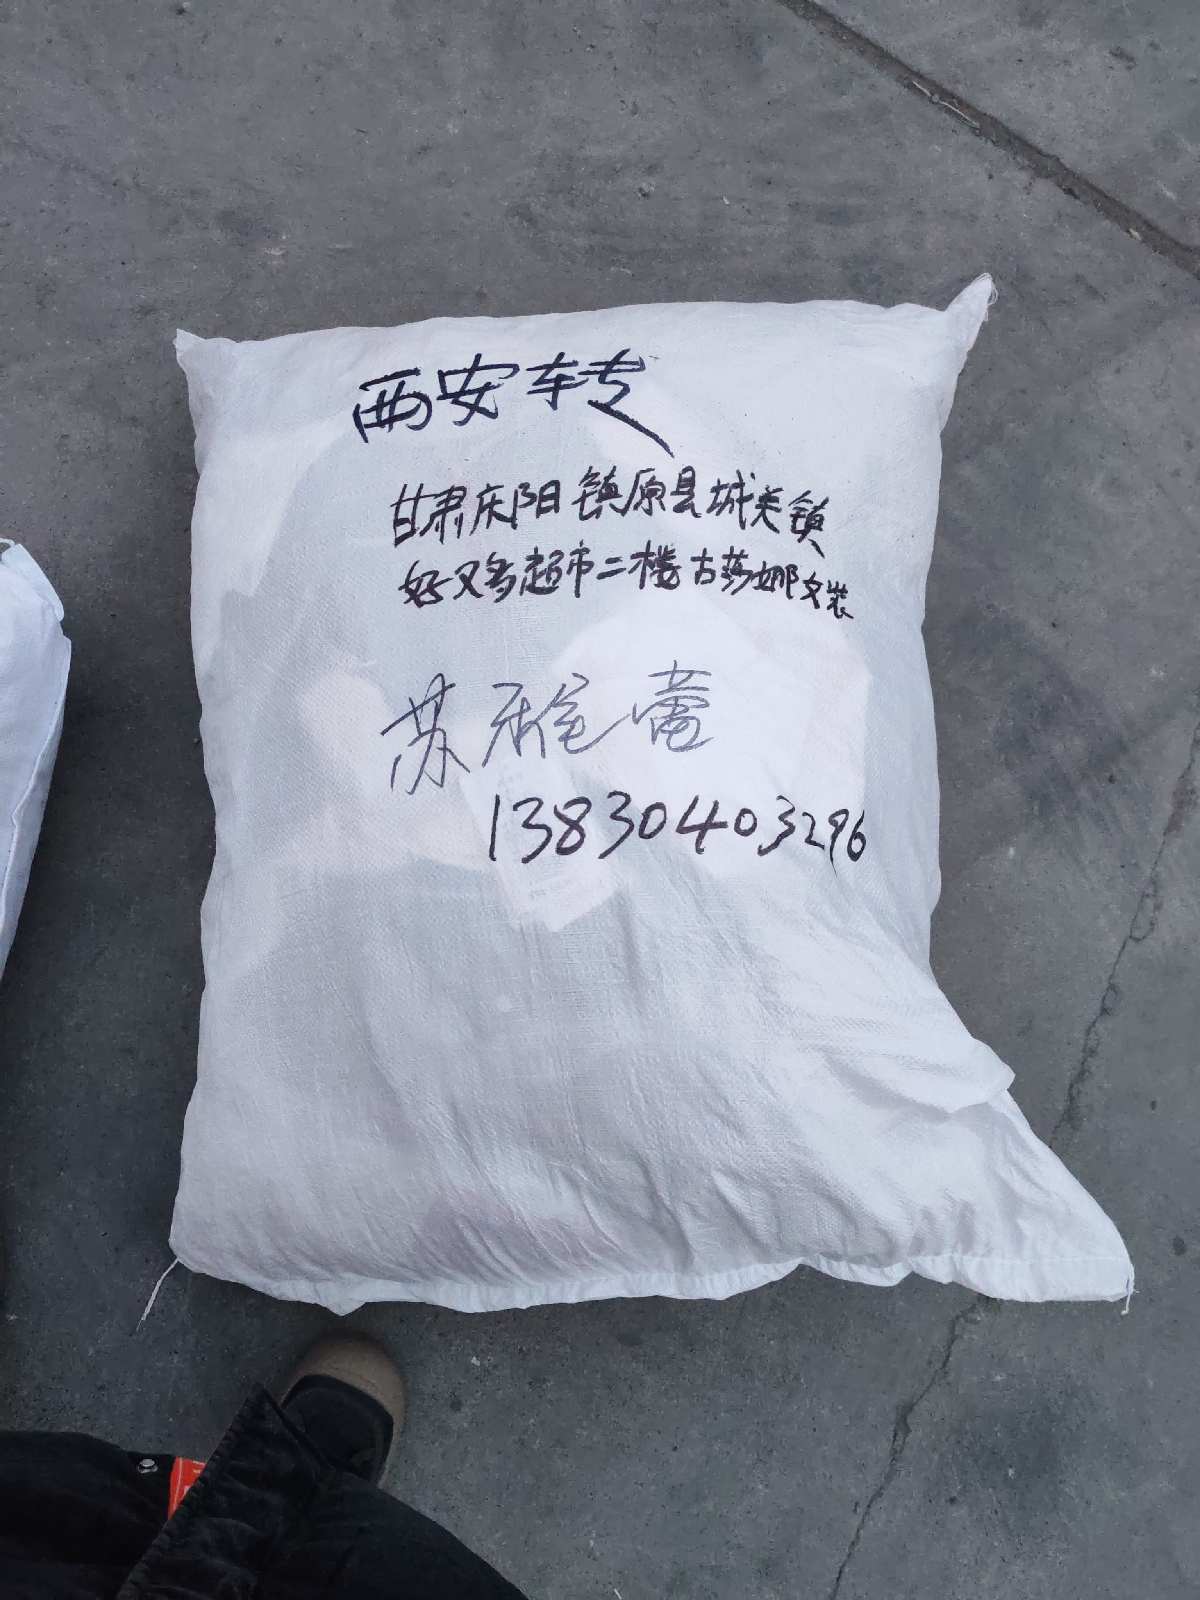 西安转
甘肃庆阳镇原县城关镇
好又多超市二楼古莎娜女装
苏雅蕾
13830403296